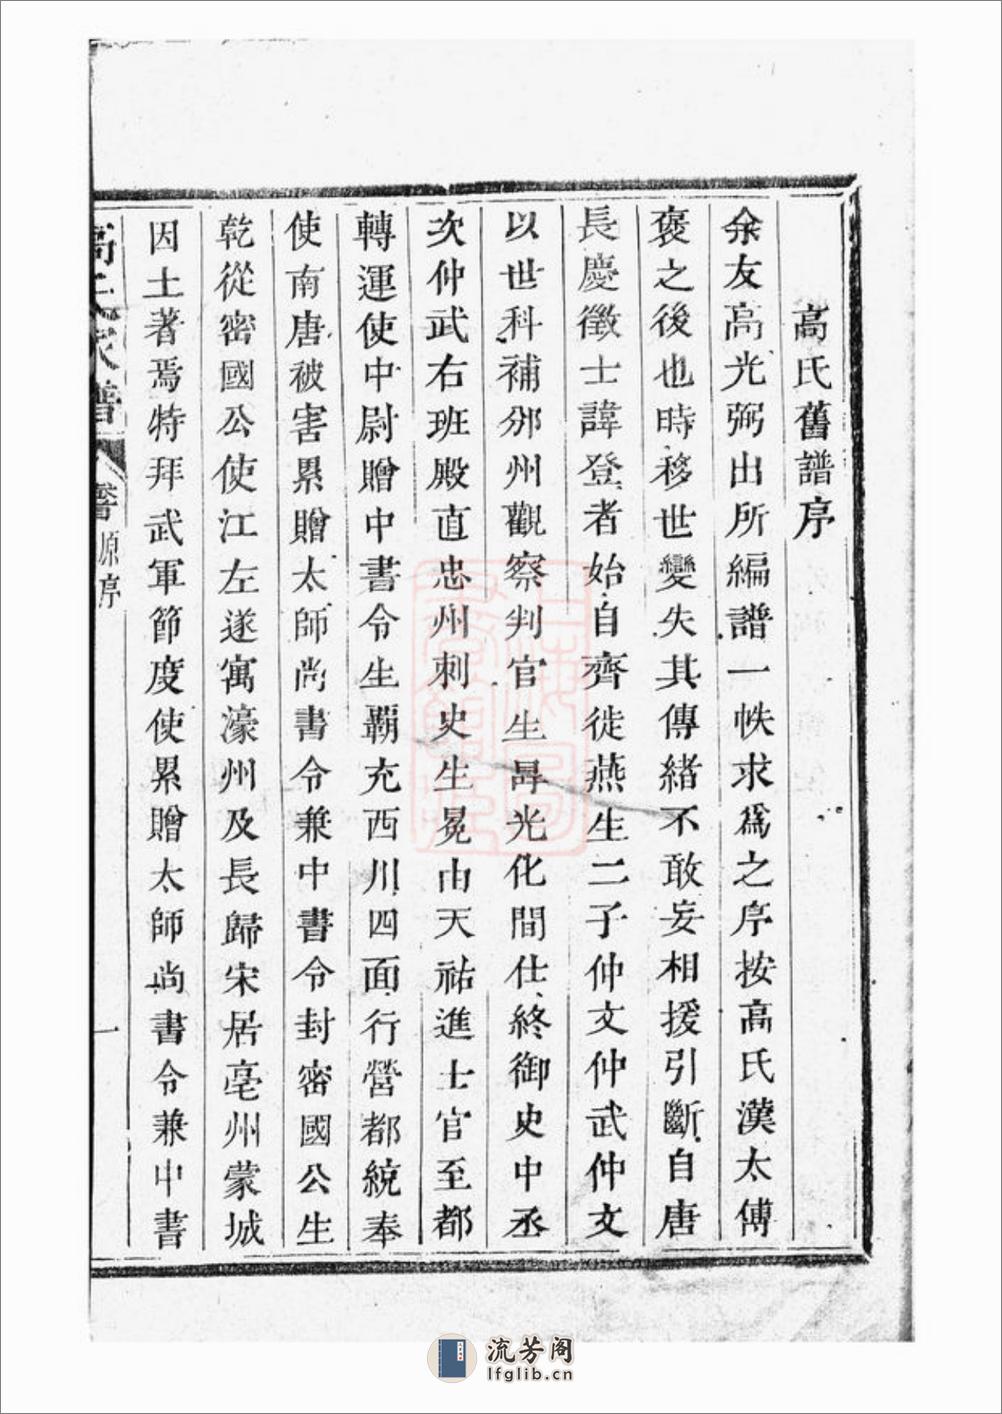 高氏舊譜序
余友高光弼出所編譜一帙求爲之序按高氏漢太傅
褒之後也時移世變失其傳緒不敢妄相援引斷自唐
長慶徵士諱登者始自齊徙燕生二子仲文仲武仲文
以世科補邠州觀察判官生㝵光化間仕終御史中丞
次仲武右班殿直忠州刺史生冕由天祐進士官至都
轉運使中尉贈中書令生霸充西川四面行營都統奉
使南唐被害累贈太師尚書令兼中書令封密國公生
乾從密國公使江左遂寓濠州及長歸宋居亳州蒙城
因土著焉特拜武軍節度使累贈太師尚書令兼中書
高氏家譜
原序
一
流芳阁
lfglib.cn